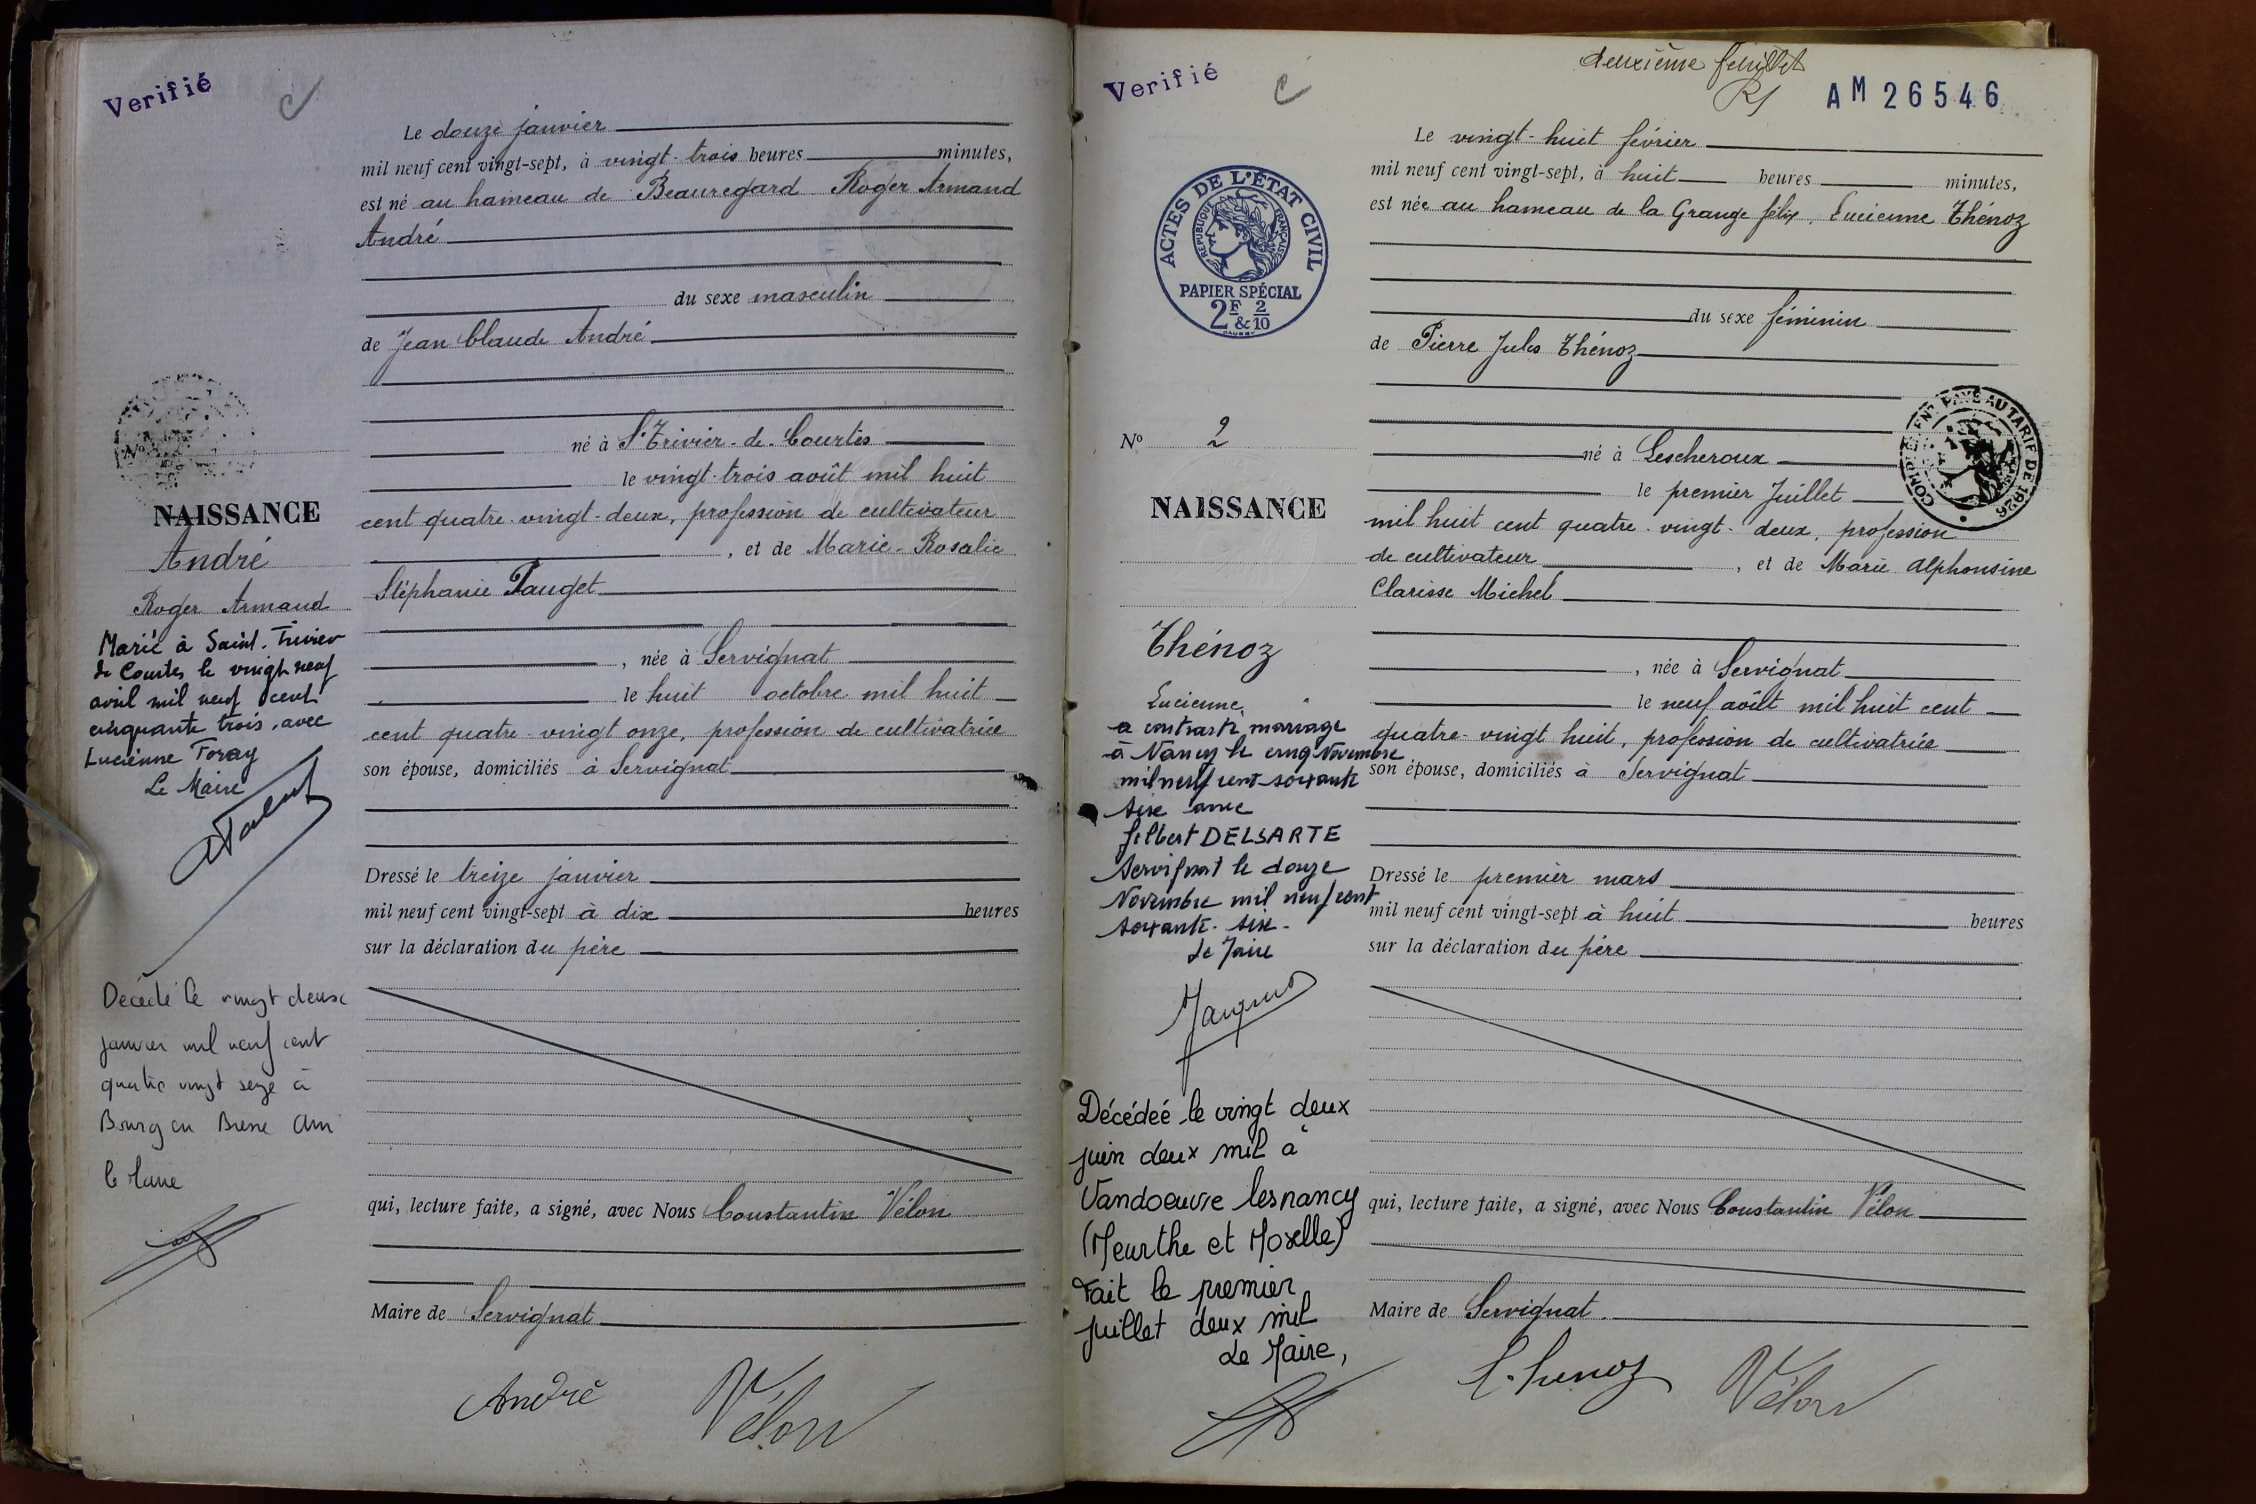 Verifié
Le douze janvier
mil neuf cent vingt-sept, à vingt-trois heures minutes,
est né au hameau de Beauregard Roger Armand
André
du sexe masculin
de Jean Claude André
né à St Trivier-de-Courtes
le vingt-trois août mil huit
cent quatre-vingt-deux, profession de cultivateur
, et de Marie-Rosalie
Stéphanie Pauget
, née à Servignat
le huit octobre mil huit
cent quatre-vingt onze, profession de cultivatrice
son épouse, domiciliés à Servignat
Dressé le treize janvier
mil neuf cent vingt-sept à dix heures
sur la déclaration du père
qui, lecture faite, a signé, avec Nous Constantin Vélon
Maire de Servignat
André Vélon
No
NAISSANCE
André
Roger Armand
Marié à Saint-Trivier
de Courtes le vingt neuf
avril mil neuf cent
cinquante trois, avec
Lucienne Foray
Le Maire
Décédé le vingt deux
janvier mil neuf cent
quatre vingt seize à
Bourg en Bresse Ain
le Maire
Verifié
deuxième feuillet
AM 26546
Le vingt-huit février
mil neuf cent vingt-sept, à huit heures minutes,
est née au hameau de la Grange félix, Lucienne Thénoz
du sexe féminin
de Pierre Jules Thénoz
né à Lescheroux
le premier Juillet
mil huit cent quatre-vingt-deux, profession
de cultivateur , et de Marie Alphonsine
Clarisse Michel
, née à Servignat
le neuf août mil huit cent
quatre-vingt huit, profession de cultivatrice
son épouse, domiciliés à Servignat
Dressé le premier mars
mil neuf cent vingt-sept à huit heures
sur la déclaration du père
qui, lecture faite, a signé, avec Nous Constantin Vélon
Maire de Servignat
Thenoz Vélon
ACTES DE L'ÉTAT CIVIL
RÉPUBLIQUE FRANÇAISE
PAPIER SPÉCIAL
2F & 2/10
COMPLÉMENT PAYÉ AU TARIF DE 1926
No 2
NAISSANCE
Thénoz
Lucienne
a contracté mariage
à Nancy le cinq Novembre
mil neuf cent soixante
six avec
Gilbert DELSARTE
Servignat le douze
Novembre mil neuf cent
soixante-six-
Le Maire
Décédée le vingt deux
juin deux mil à
Vandoeuvre les nancy
(Meurthe et Moselle)
Fait le premier
juillet deux mil
Le Maire,